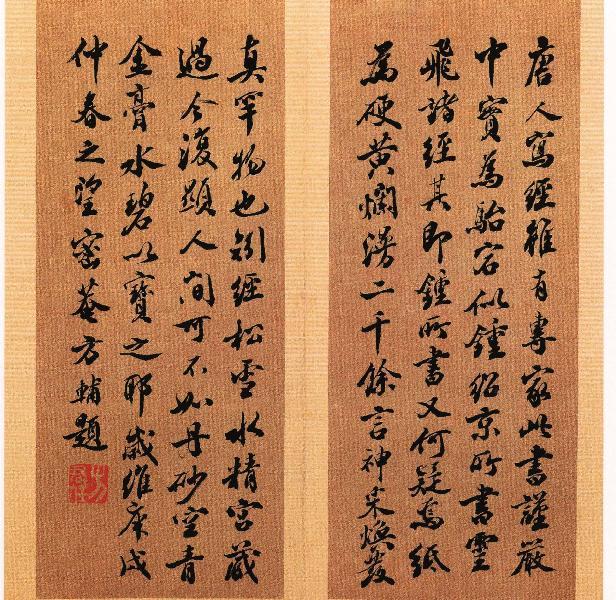 唐人寫經雖有專家此書謹嚴
中實為駘宕似鍾紹京所書靈
飛諸經其即鍾所書又何疑焉紙
為硬黃爛漫二千餘言神采煥發
真罕物也矧經松雪水精宮藏
過今復顯人間可不如丹砂空青
金膏水碧以寶之耶歲維庚戌
仲春之望密菴方輔題